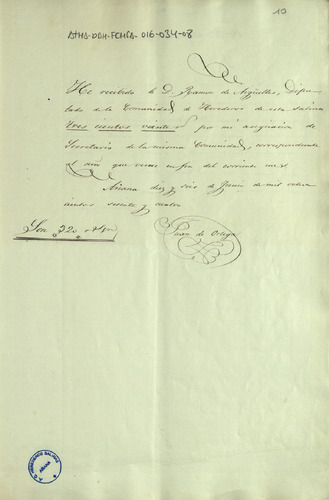 10
ATHA-DAH-FCMPA-016-034-08
He recibido de D. Ramon de Argüelles, Dipu
tado de la Comunidad de Herederos de esta salina
Tres cientos veinte por mi asignacion de
Secretario de la misma Comunidad, correspondiente
al año que vence en fin del corriente mes
Añana diez y seis de Junio de mil ocho
cientos sesenta y cuatro
Juan de Ortega
Son 320
AÑANA